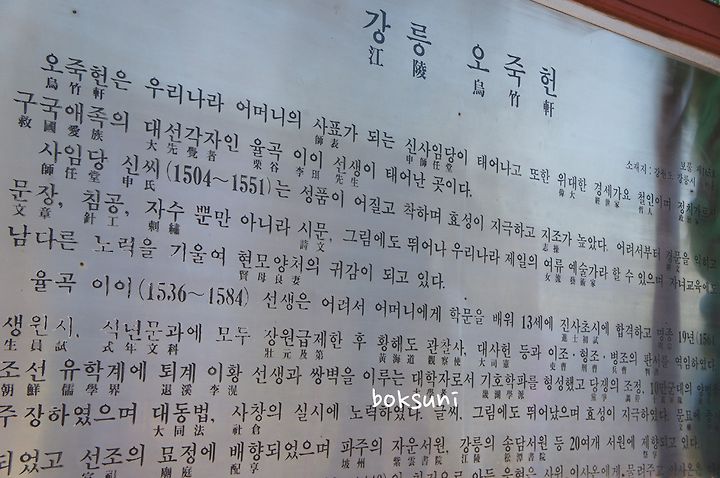 강릉 오죽헌
江陵 烏竹軒
보물 제165호
소재지 : 강원도 강릉시
오죽헌은 우리나라 어머니의 사표가 되는 신사임당이 태어나고 또한 위대한 경세가요 철인이며 정치가로서
烏竹軒 師表 申師任堂 偉大 經世家 哲人 政治家
구국애족의 대선각자인 율곡 이이 선생이 태어난 곳이다.
救國愛族 大先覺者 栗谷 李珥 先生
사임당 신씨(1504~1551)는 성품이 어질고 착하며 효성이 지극하고 지조가 높았다. 어려서부터 경문을 익히고
師任堂 申氏 志操
문장, 침공, 자수 뿐만 아니라 시문, 그림에도 뛰어나 우리나라 제일의 여류 예술가라 할 수 있으며 자녀교육에도
文章 針工 刺繡 詩文 女流 藝術家
남다른 노력을 기울여 현모양처의 귀감이 되고 있다.
賢母良妻
율곡 이이(1536~1584) 선생은 어려서 어머니에게 학문을 배워 13세에 진사초시에 합격하고 명종 19년
進士初試
생원시, 식년문과에 모두 장원급제한 후 황해도 관찰사, 대사헌 등과 이조·형조·병조의 판서를 역임하였다.
生員試 式年文科 壯元及第 黃海道 觀察使 大司憲 吏曹 刑曹 兵曹 判書
조선 유학계에 퇴계 이황 선생과 쌍벽을 이루는 대학자로서 기호학파를 형성했고 당쟁의 조정, 10만군대의
朝鮮 儒學界 退溪 李滉 畿湖學派 黨爭 調停
주장하였으며 대동법, 사창의 실시에 노력하였다. 글씨, 그림에도 뛰어났으며 효성이 지극하였다.
大同法 社倉
되었고 선조의 묘정에 배향되었으며 파주의 자운서원, 강릉의 송담서원 등 20여개 서원에 제향되고 있다.
宣祖 廟庭 配享 坡州 紫雲書院 江陵 松潭書院
boksuni